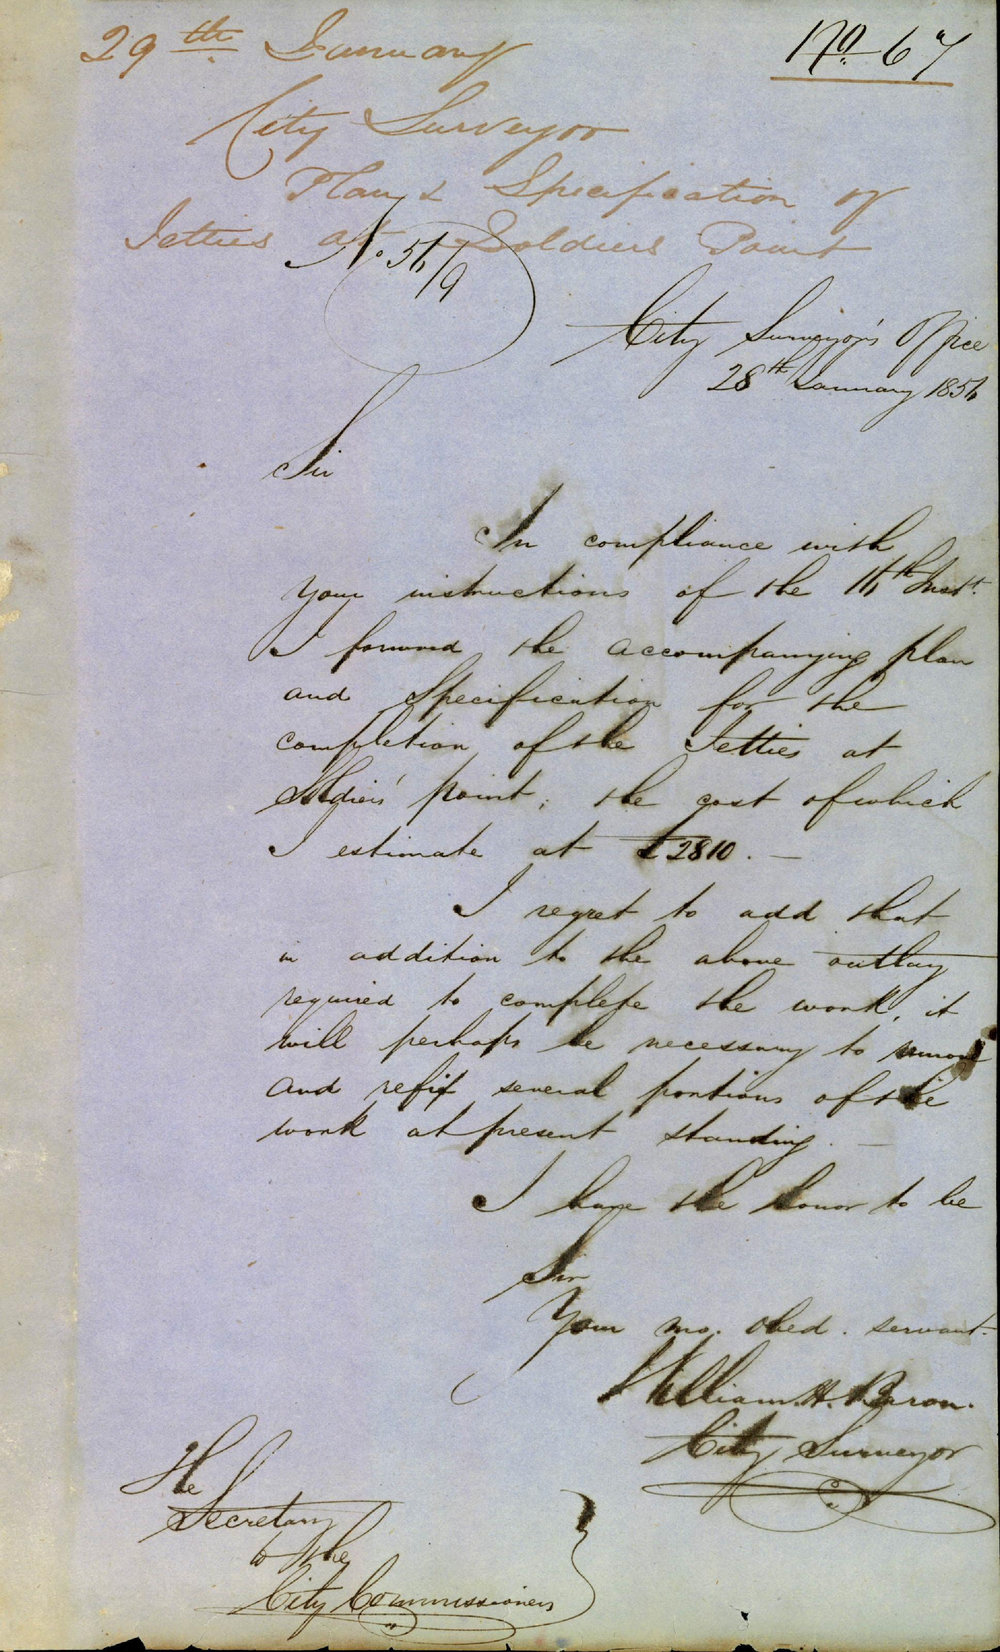 29th January
No 67
City Surveyor
Plan & Specification of
Jetties at Soldiers Point
No 56/9
City Surveyor's Office
28th January 1856
Sir
In compliance with
your instructions of the 16th Inst.
I forward the accompanying plan
and Specification for the
completion of the Jetties at
Soldiers' point; the cost of which
I estimate at £2810. —
I regret to add that
in addition to the above outlay
required to complete the work, it
will perhaps be necessary to remove
and refix several portions of the
work at present standing. —
I have the honor to be
Sir
Your mo. obed. servant.
William. H. Baron.
City Surveyor
The
Secretary
to the
City Commissioners